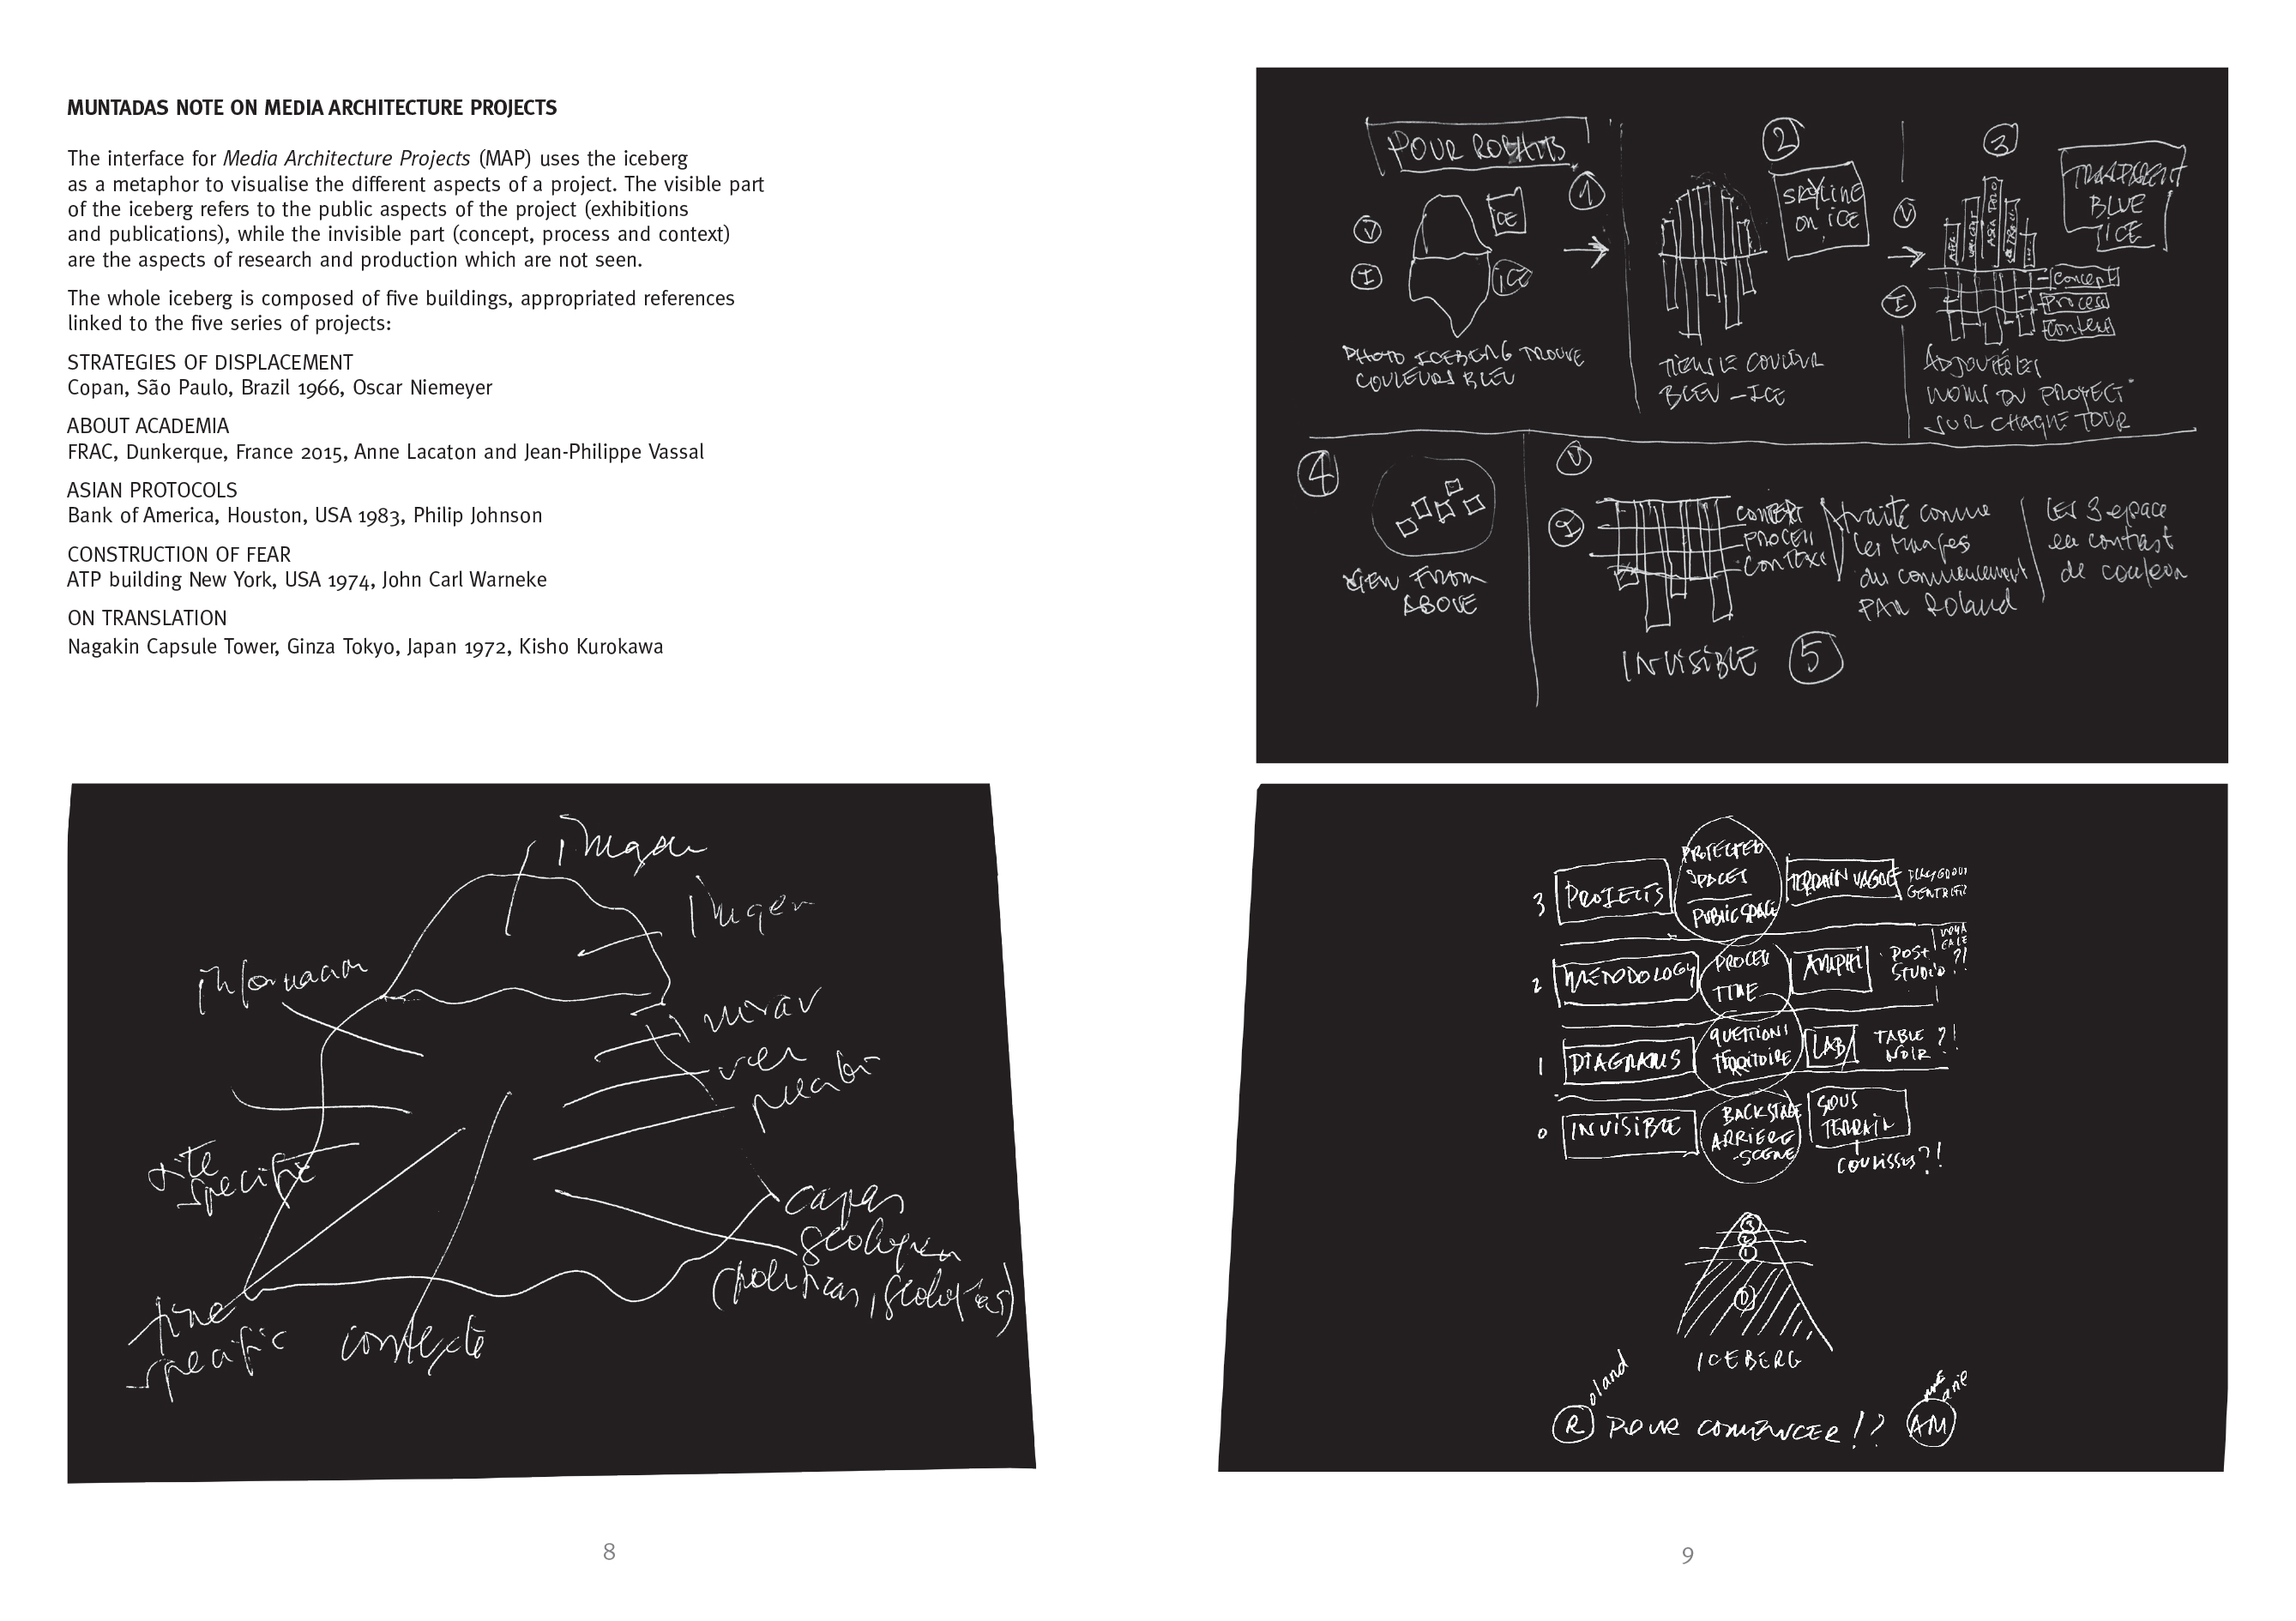 MUNTADAS NOTE ON MEDIA ARCHITECTURE PROJECTS
The interface for Media Architecture Projects (MAP) uses the iceberg
as a metaphor to visualise the different aspects of a project. The visible part
of the iceberg refers to the public aspects of the project (exhibitions
and publications), while the invisible part (concept, process and context)
are the aspects of research and production which are not seen.
The whole iceberg is composed of five buildings, appropriated references
linked to the five series of projects:
STRATEGIES OF DISPLACEMENT
Copan, São Paulo, Brazil 1966, Oscar Niemeyer
ABOUT ACADEMIA
FRAC, Dunkerque, France 2015, Anne Lacaton and Jean-Philippe Vassal
ASIAN PROTOCOLS
Bank of America, Houston, USA 1983, Philip Johnson
CONSTRUCTION OF FEAR
ATP building New York, USA 1974, John Carl Warneke
ON TRANSLATION
Nagakin Capsule Tower, Ginza Tokyo, Japan 1972, Kisho Kurokawa
imagen
imagen
informacion
site
specific
time
specific
contexto
capas
8
POUR
1
V
ICE
I
ICE
PHOTO ICEBERG TROUVE
COULEURS BLEU
2
SKYLINE
ON ICE
COULEUR
BLEU - ICE
3
V
TRANSPARENT
BLUE
ICE
I
Concept
Process
Context
DU PROYECT
SUR CHAQUE TOUR
4
VIEW FROM
ABOVE
V
I
CONCEPT
PROCESS
CONTEXT
traité comme
les
du commencement
PAR Roland
LES 3 espace
en contrast
de couleur
INVISIBLE 5
3 PROJECTS
PROTECTED
SPACES
PUBLIC SPACE
TERRAIN VAGUE
2 METODOLOGY
PROCESS
TIME
AMPHI
POST
STUDIO ?!
1 DIAGRAMS
QUESTIONS
TERRITOIRE
LAB
TABLE ?!
NOIR
0 INVISIBLE
BACKSTAGE
ARRIERE
-SCENE
SOUS
TERRAIN
COULISSES?!
3
2
1
0
ICEBERG
Roland POUR COMENCER !? AM
9